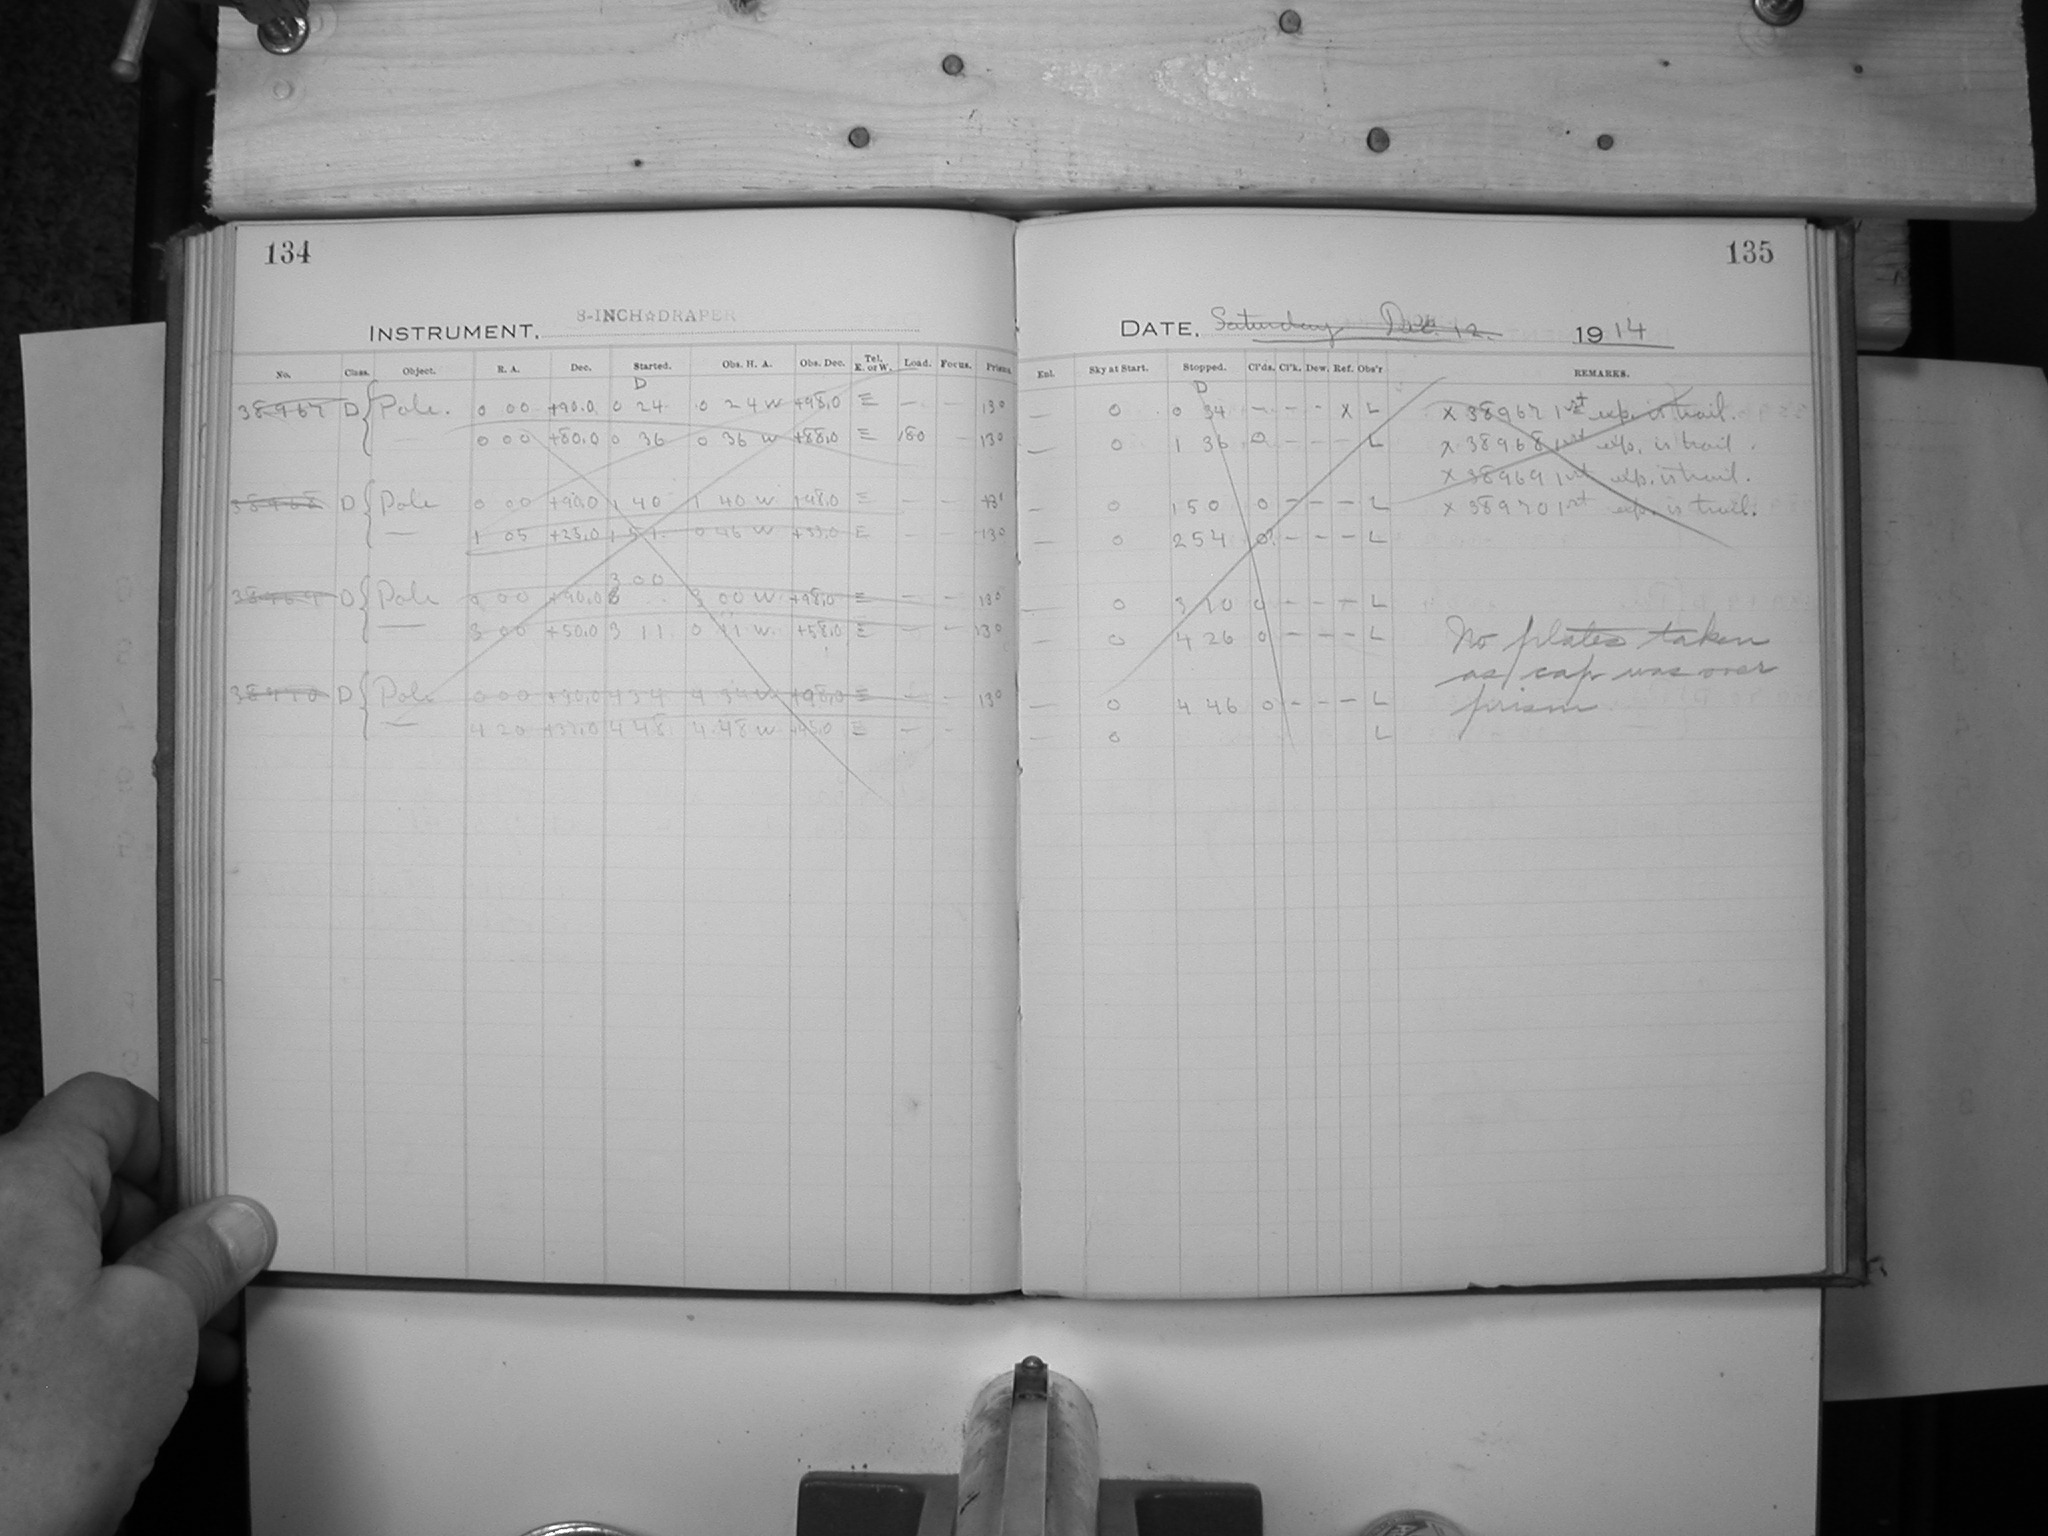 134
135
8-INCH☆DRAPER
INSTRUMENT.
DATE. Saturday Dec. 12. 1914
No. Class. Object. R. A. Dec. Started. Obs. H. A. Obs. Dec. Tel. E. or W. Load. Focus. Prism.
Enl. Sky at Start. Stopped. Cl'ds. Cl'k. Dew. Ref. Obs'r REMARKS.
D
D
38967 D { Pole. 0 00 +90.0 0 24 0 24 W +98.0 E — — 13° — 0 0 34 - - - x L x 38967 1st exp. is trail.
— 0 00 +80.0 0 36 0 36 W +88.0 E 180 — 13° — 0 1 36 0 - - - L x 38968 1st exp. is trail.
x 38969 1st exp. is trail.
38968 D { Pole 0 00 +90.0 1 40 1 40 W +98.0 E — — 13° — 0 1 50 0 - - - L x 38970 1st exp. is trail.
— 1 05 +25.0 1 51 0 46 W +33.0 E — — 13° — 0 2 54 0 - - - L
3 00
38969 D { Pole 0 00 +90.0 3 00 W +98.0 E — — 13° — 0 3 10 0 - - - L
— 3 00 +50.0 3 11 0 11 W +58.0 E — — 13° — 0 4 26 0 - - - L No plates taken
as cap was over
38970 D { Pole 0 00 +90.0 4 34 4 34 W +98.0 E — - 13° — 0 4 46 0 - - - L prism
— 4 20 +37.0 4 48 4 48 W +45.0 E — - — 0 L